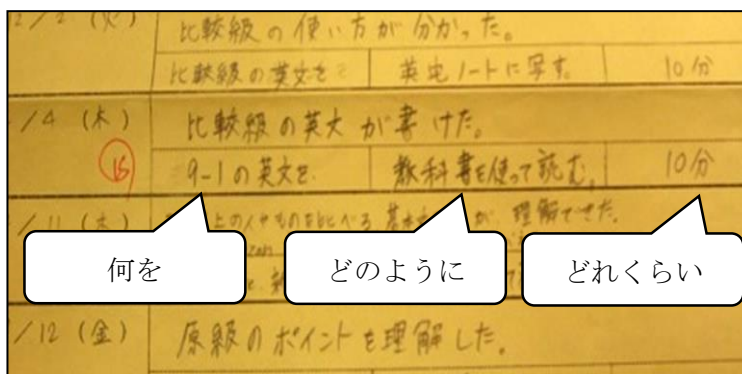 2/2 (火) 比較級の使い方が分かった。
比較級の英文を 英宅ノートに写す。 10分
/4 (木) 比較級の英文が書けた。
15 9-1の英文を 教科書を使って読む。 10分
/11 (木) 上の人やものを比べる 基本 が 理解できた。
何を どのように どれくらい
/12 (金) 原級のポイントを理解した。